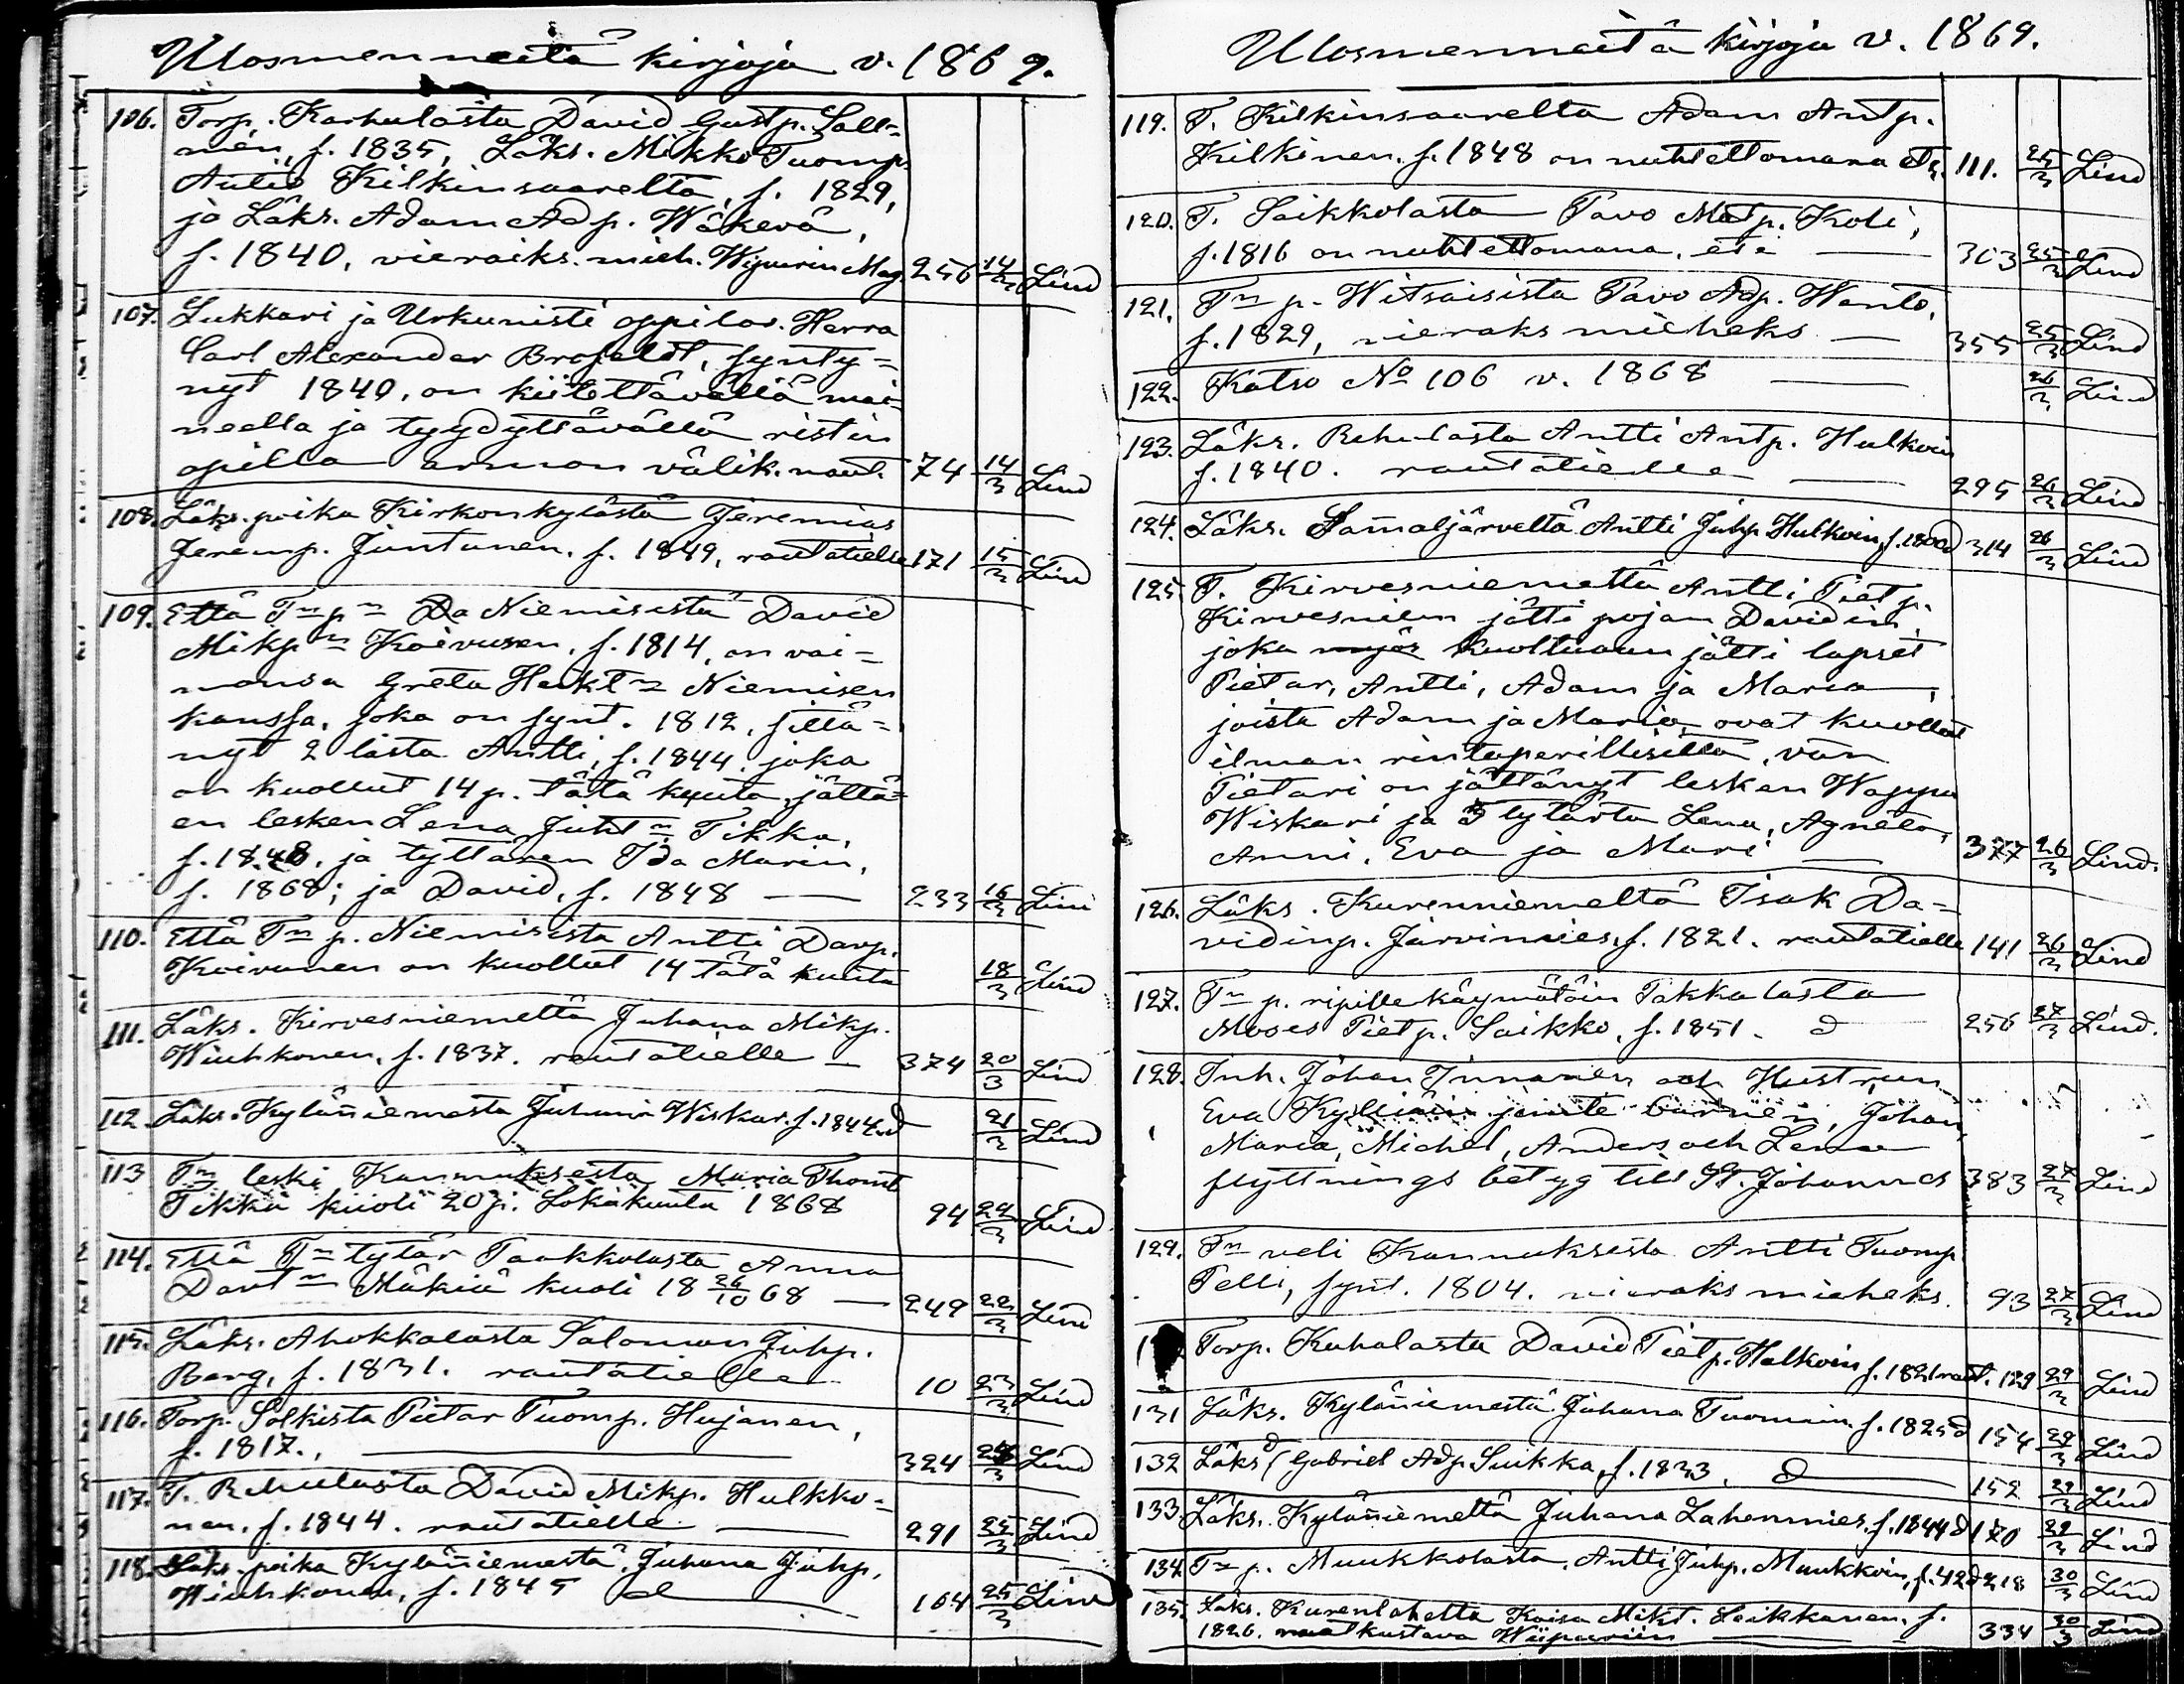 Ulosmenneitä kirjoja v. 1869.
106. Torp. Karhulasta David Gustp. Sall-
men, f. 1835, Läks. Mikko Tuomp.
Antio Kilkinsaarelta, f. 1829,
ja Läks. Adam Adp. Wäkevä,
f. 1840, vieraiks. mieh. Wipurin Mag. 256 14/3 Lind
107. Lukkari ja Urkunisti oppilas. Herra
Carl Alexander Brofeldt, synty-
nyt 1840, on kiitettävällä mai-
neella ja tyydyttävällä ristin
opilla armon välik. naut. 74 14/3 Lind
108. Läks. poika Kirkonkylästä Jeremias
Jeremp. Juntunen, f. 1849, rautatielle 171 15/3 Lind
109. Että Tn pn Da Niemisistä David
Mikpn Koivusen, f. 1814, on vai-
monsa Greta Heikt Niemisen
kanssa, joka on synt. 1812, siitä-
nyt 2 lasta Antti, f. 1844, joka
on kuollut 14 p. tätä kuuta, jättä-
en lesken Lena Juht Tikka,
f. 1848, ja tyttären Ida Marin,
f. 1868; ja David, f. 1848 — 233 16/3 Lind
110. Että Tn p. Niemisistä Antti Davp.
Koivunen on kuollut 14 tätä kuuta 18/3 Lind
111. Läks. Kirvesniemeltä Juhana Mikp.
Wiuhkonen, f. 1837. rautatielle — 374 20/3 Lind
112. Läks. Kylänniemestä Juhana Wiskar. f. 1844. d 21/3 Lind
113 Tn leski Kannuksesta Maria Thomt
Tikka kuoli 20 p. Lokakuuta 1868 94 22/3 Lind
114. Että Tn tytär Taukkolasta Anna
Davt Mäkiä kuoli 18 26/10 68 — 249 22/3 Lind
115. Läks. Ahokkalasta Salomon Juhp.
Barg, f. 1831. rautatielle 10 23/3 Lind
116. Torp. Solkista Pietar Tuomp. Hujanen,
f. 1817., — 324 /3 Lind
117. T. Rehulasta David Mikp. Hulkko-
nen, f. 1844. rautatielle — 291 25/3 Lind
118. Läks. poika Kylänniemestä, Juhana Juhp.
Wiuhkonen, f. 1845 d — 164 25/3 Lind
Ulosmenneitä kirjoja v. 1869.
119. T. Kilkinsaarelta Adam Antp.
Kilkinen, f. 1848 on nuhtettomana et. 111. 25/3 Lind
120. T. Saikkolasta Pavo Matp. Koli,
f. 1816 on nuhtettomana, etc — 303 25/3 Lind
121. Tn p. Witsaisista Pavo Adp. Wanto,
f. 1829, vieraks mieheks — 355 25/3 Lind
122. Katso No 106 v. 1868 — 26/3 Lind
123. Läks. Rehulasta Antti Antp. Hulkoin
f. 1840. rautatielle — 295 26/3 Lind
124. Läks. Sammaljärveltä Antti Juhp. Hulkoin, f. d 314 26/3 Lind
125. T. Kirvesniemeltä Antti Pietp.
Kirvesniein jätti pojan Davidin,
joka kuoltuaan jätti lapset
Pietar, Antti, Adam ja Maria,
joista Adam ja Maria ovat kuollet
ilman rintaperillisittä, van
Pietari on jättänyt lesken Wappu
Wiskari ja 5 tytärtä Lena, Agneta,
Anni, Eva ja Mari — 377 26/3 Lind.
126. Läks. Kurenniemeltä Isak Da-
vidinp. Järvinnies, f. 1821. rautatielle 141 26/3 Lind
127. Tn p. ripille käymätöin Takkalasta
Moses Pietp. Saikko, f. 1851. d 256 27/3 Lind.
128. Inh. Johan Innanen och Hustrun
Eva jemte barnen, Johan,
Maria, Michel, Anders och Lena
flyttnings betyg till St. Johannes 383 27/3 Lind
129. Tn veli Kannuksesta Antti Tuomp.
Pelli, synt. 1804. vieraks mieheks. 93 27/3 Lind
Torp. Kuhalasta David Pietp. Halkoin f. 1821 raut. 129 29/3 Lind
131 Läks. Kylänniemestä Juhana Tuomain. f. 1825 d 154 29/3 Lind
132 Läks d Gabriel Adp. Suikka, f. 1833, d — 152 29/3 Lind
133. Läks. Kylänniemeltä Juhana Lahennies, f. 1844 d 170 29/3 Lind
134 Tn p. Muukkolasta, Antti Juhp. Muukkoin, f. 42 d 218 30/3 Lind
135. Läks. Kurenlahelta Kaisa Mikt. Leikkanen, f.
1826. matkustava Wiipuriin — 334 30/3 Lind